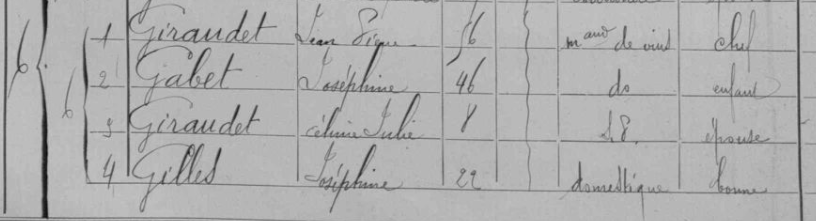 6 6 1 Giraudet Jean 56 mand de vins chef
2 Gabet Joséphine 46 do enfant
3 Giraudet Célinie Julie 8 s.p. épouse
4 Gilles Joséphine 22 domestique bonne